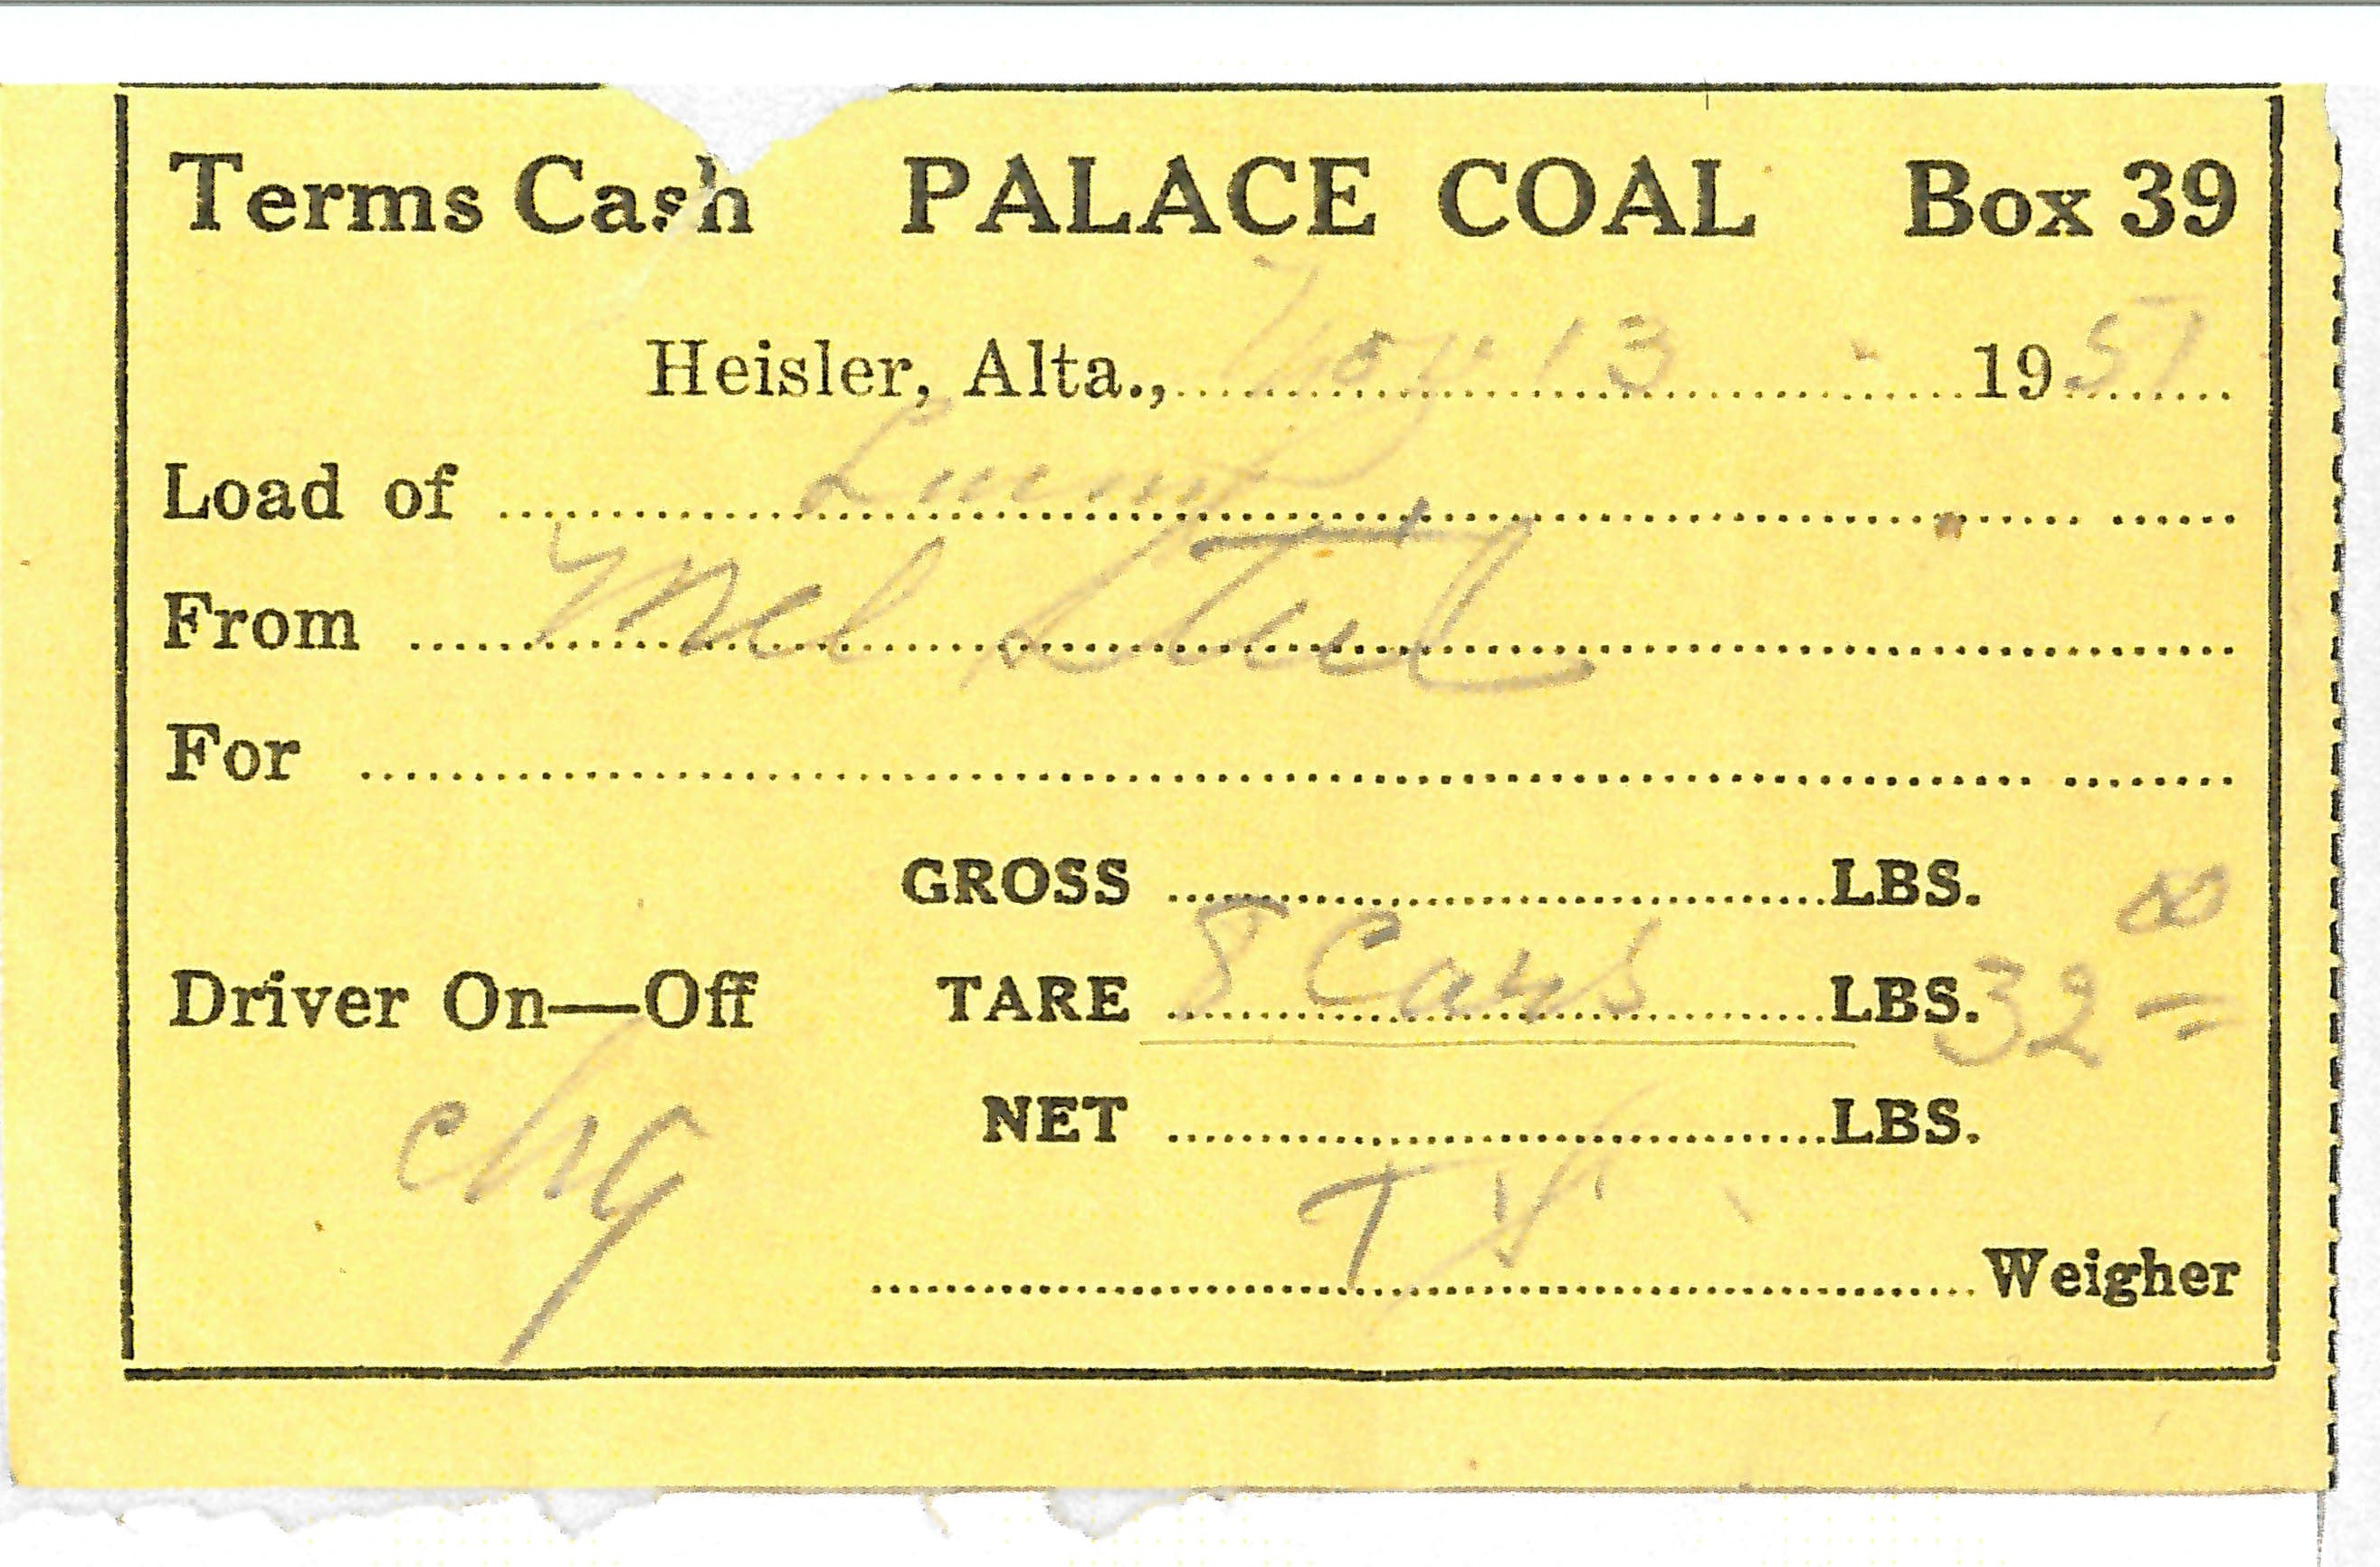 Terms Cash PALACE COAL Box 39
Heisler, Alta., Nov. 13 1951
Load of Lump
From Mel Steil
For
GROSS LBS.
Driver On—Off TARE 8 Cars LBS. 32 00
chg NET LBS.
Weigher